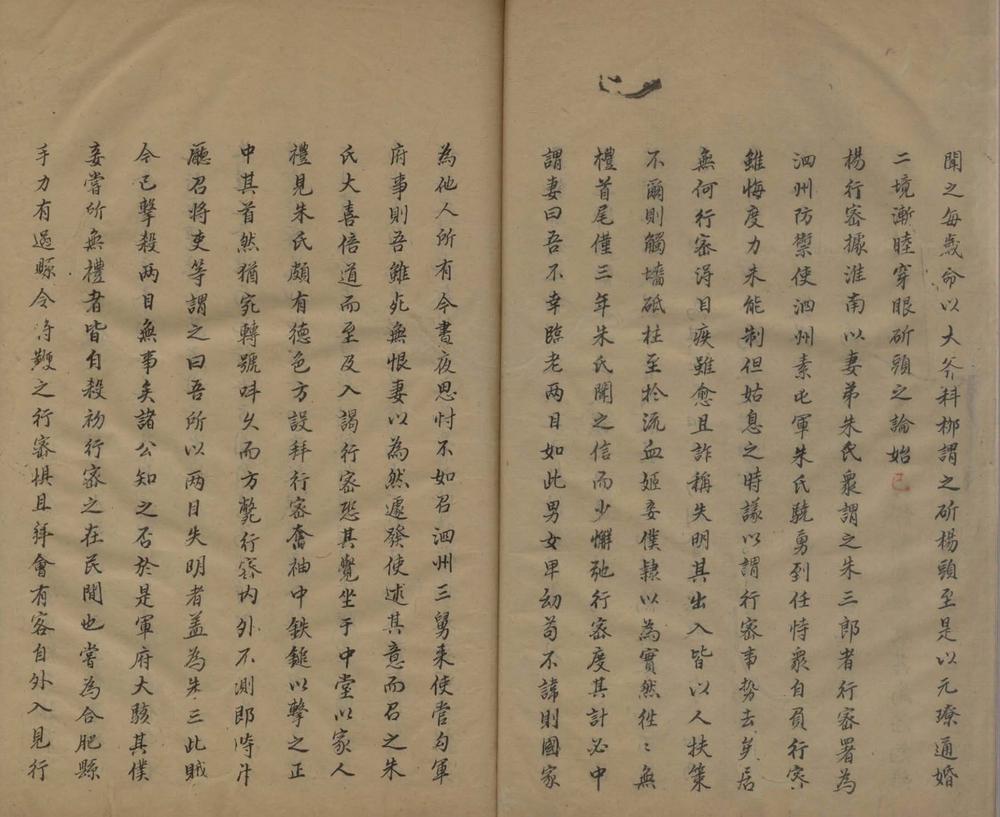 聞之每歲命以大斧科柳謂之斫楊頭至是以元璙通婚
二境漸睦穿眼斫頭之論始已
楊行密據淮南以妻弟朱氏衆謂之朱三郎者行密署為
泗州防禦使泗州素屯軍朱氏驍勇到任恃衆自負行密
雖悔度力未能制但姑息之時議以謂行密事勢去矣居
無何行密得目疾雖愈且詐稱失明其出入皆以人扶策
不爾則觸墻砥柱至於流血姬妾僕隸以為實然徃〻無
禮首尾僅三年朱氏聞之信而少懈弛行密度其計必中
謂妻曰吾不幸臨老兩目如此男女卑幼苟不諱則國家
為他人所有今晝夜思忖不如召泗州三舅來使當勾軍
府事則吾雖死無恨妻以為然遽發使述其意而召之朱
氏大喜倍道而至及入謁行密恐其覺坐于中堂以家人
禮見朱氏頗有德色方設拜行密奮袖中鉄鎚以擊之正
中其首然猶宛轉號呌久而方斃行密內外不測即時升
廳召將吏等謂之曰吾所以兩目失明者盖為朱三此賊
今已擊殺兩目無事矣諸公知之否於是軍府大駭其僕
妾嘗所無禮者皆自殺初行密之在民間也嘗為合肥縣
手力有過縣令將鞭之行密懼且拜會有客自外入見行